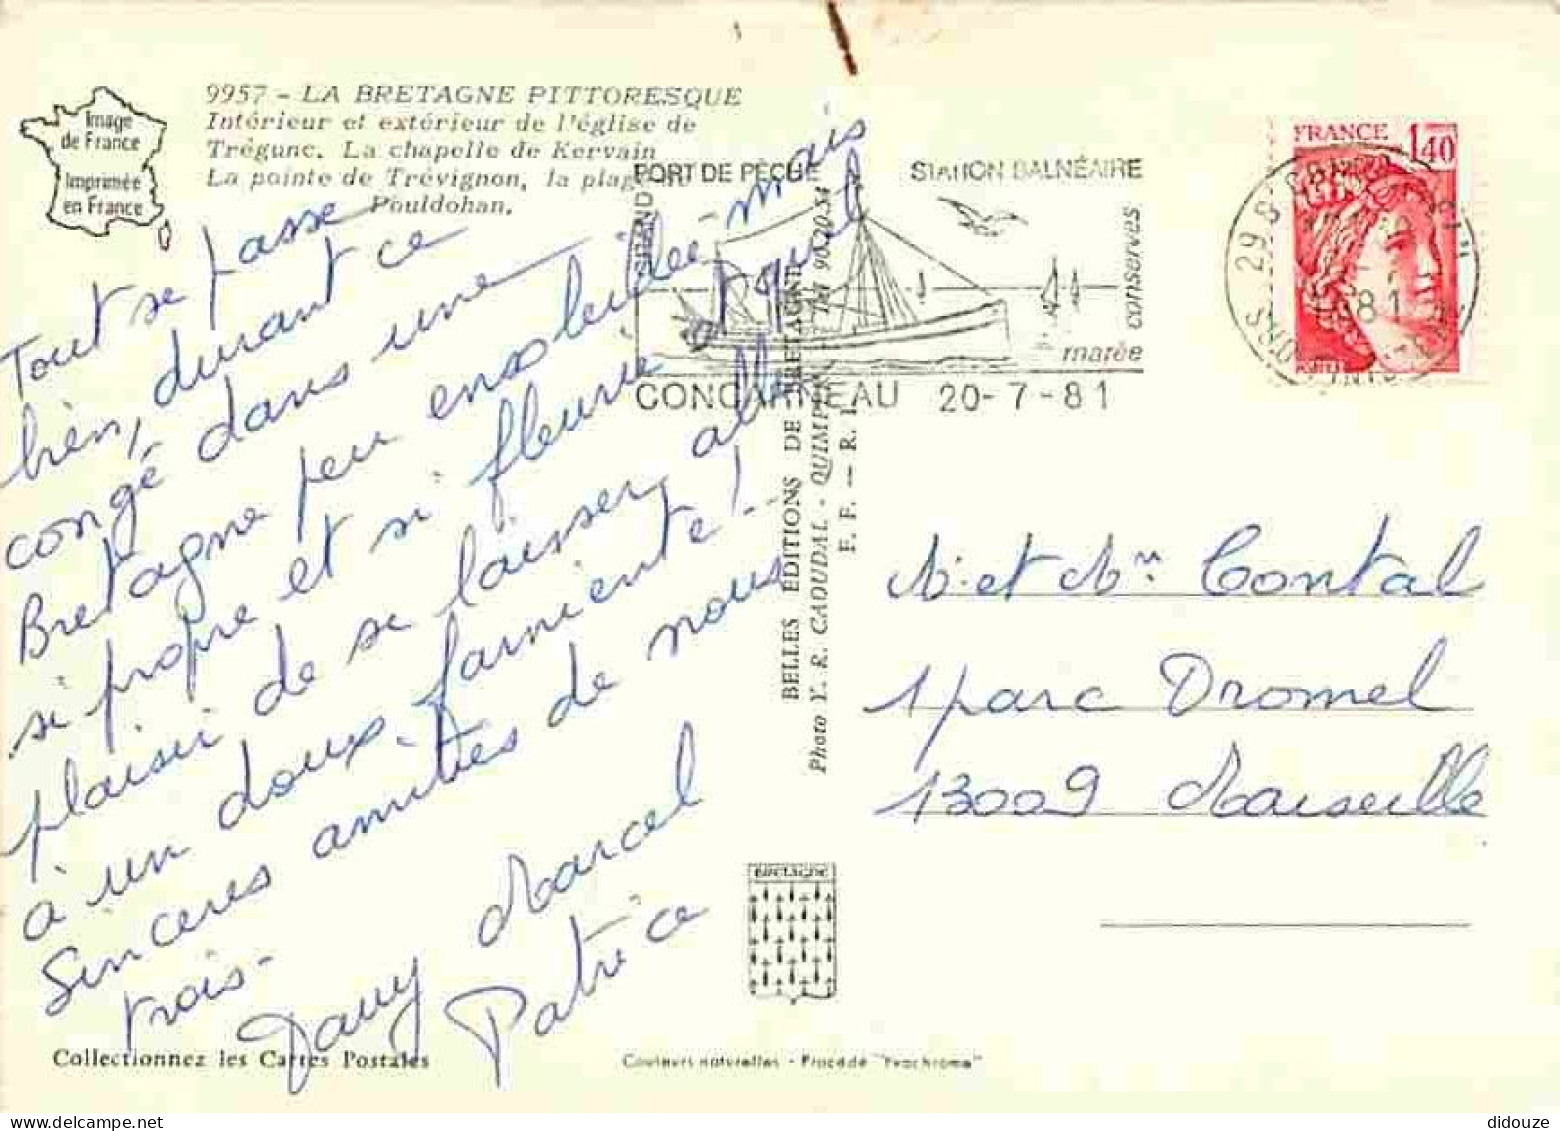 9957 - LA BRETAGNE PITTORESQUE
Intérieur et extérieur de l'église de
Trégunc. La chapelle de Kervain
La pointe de Trévignon, la plage
Pouldohan.
Image
de France
Imprimée
en France
Tout se passe
bien, durant ce
congé dans une
Bretagne peu ensoleillée mais
si propre et si fleurie
plaisir de se laisser aller
à un doux farniente !
Sincères amitiés de nous
trois -
Dany Marcel
Patrice
PORT DE PÊCHE
STATION BALNÉAIRE
GRAND
conserves
marée
CONCARNEAU 20-7-81
FRANCE
1,40
29
81
BELLES ÉDITIONS DE BRETAGNE
Photo Y. R. CAOUDAL - QUIMPER Tél 90.20.54
F. F. - R. I.
M. et Mme Contal
1 parc Dromel
13009 Marseille
BRETAGNE
Collectionnez les Cartes Postales
Couleurs naturelles - Procédé "Yvachrome"
didouze